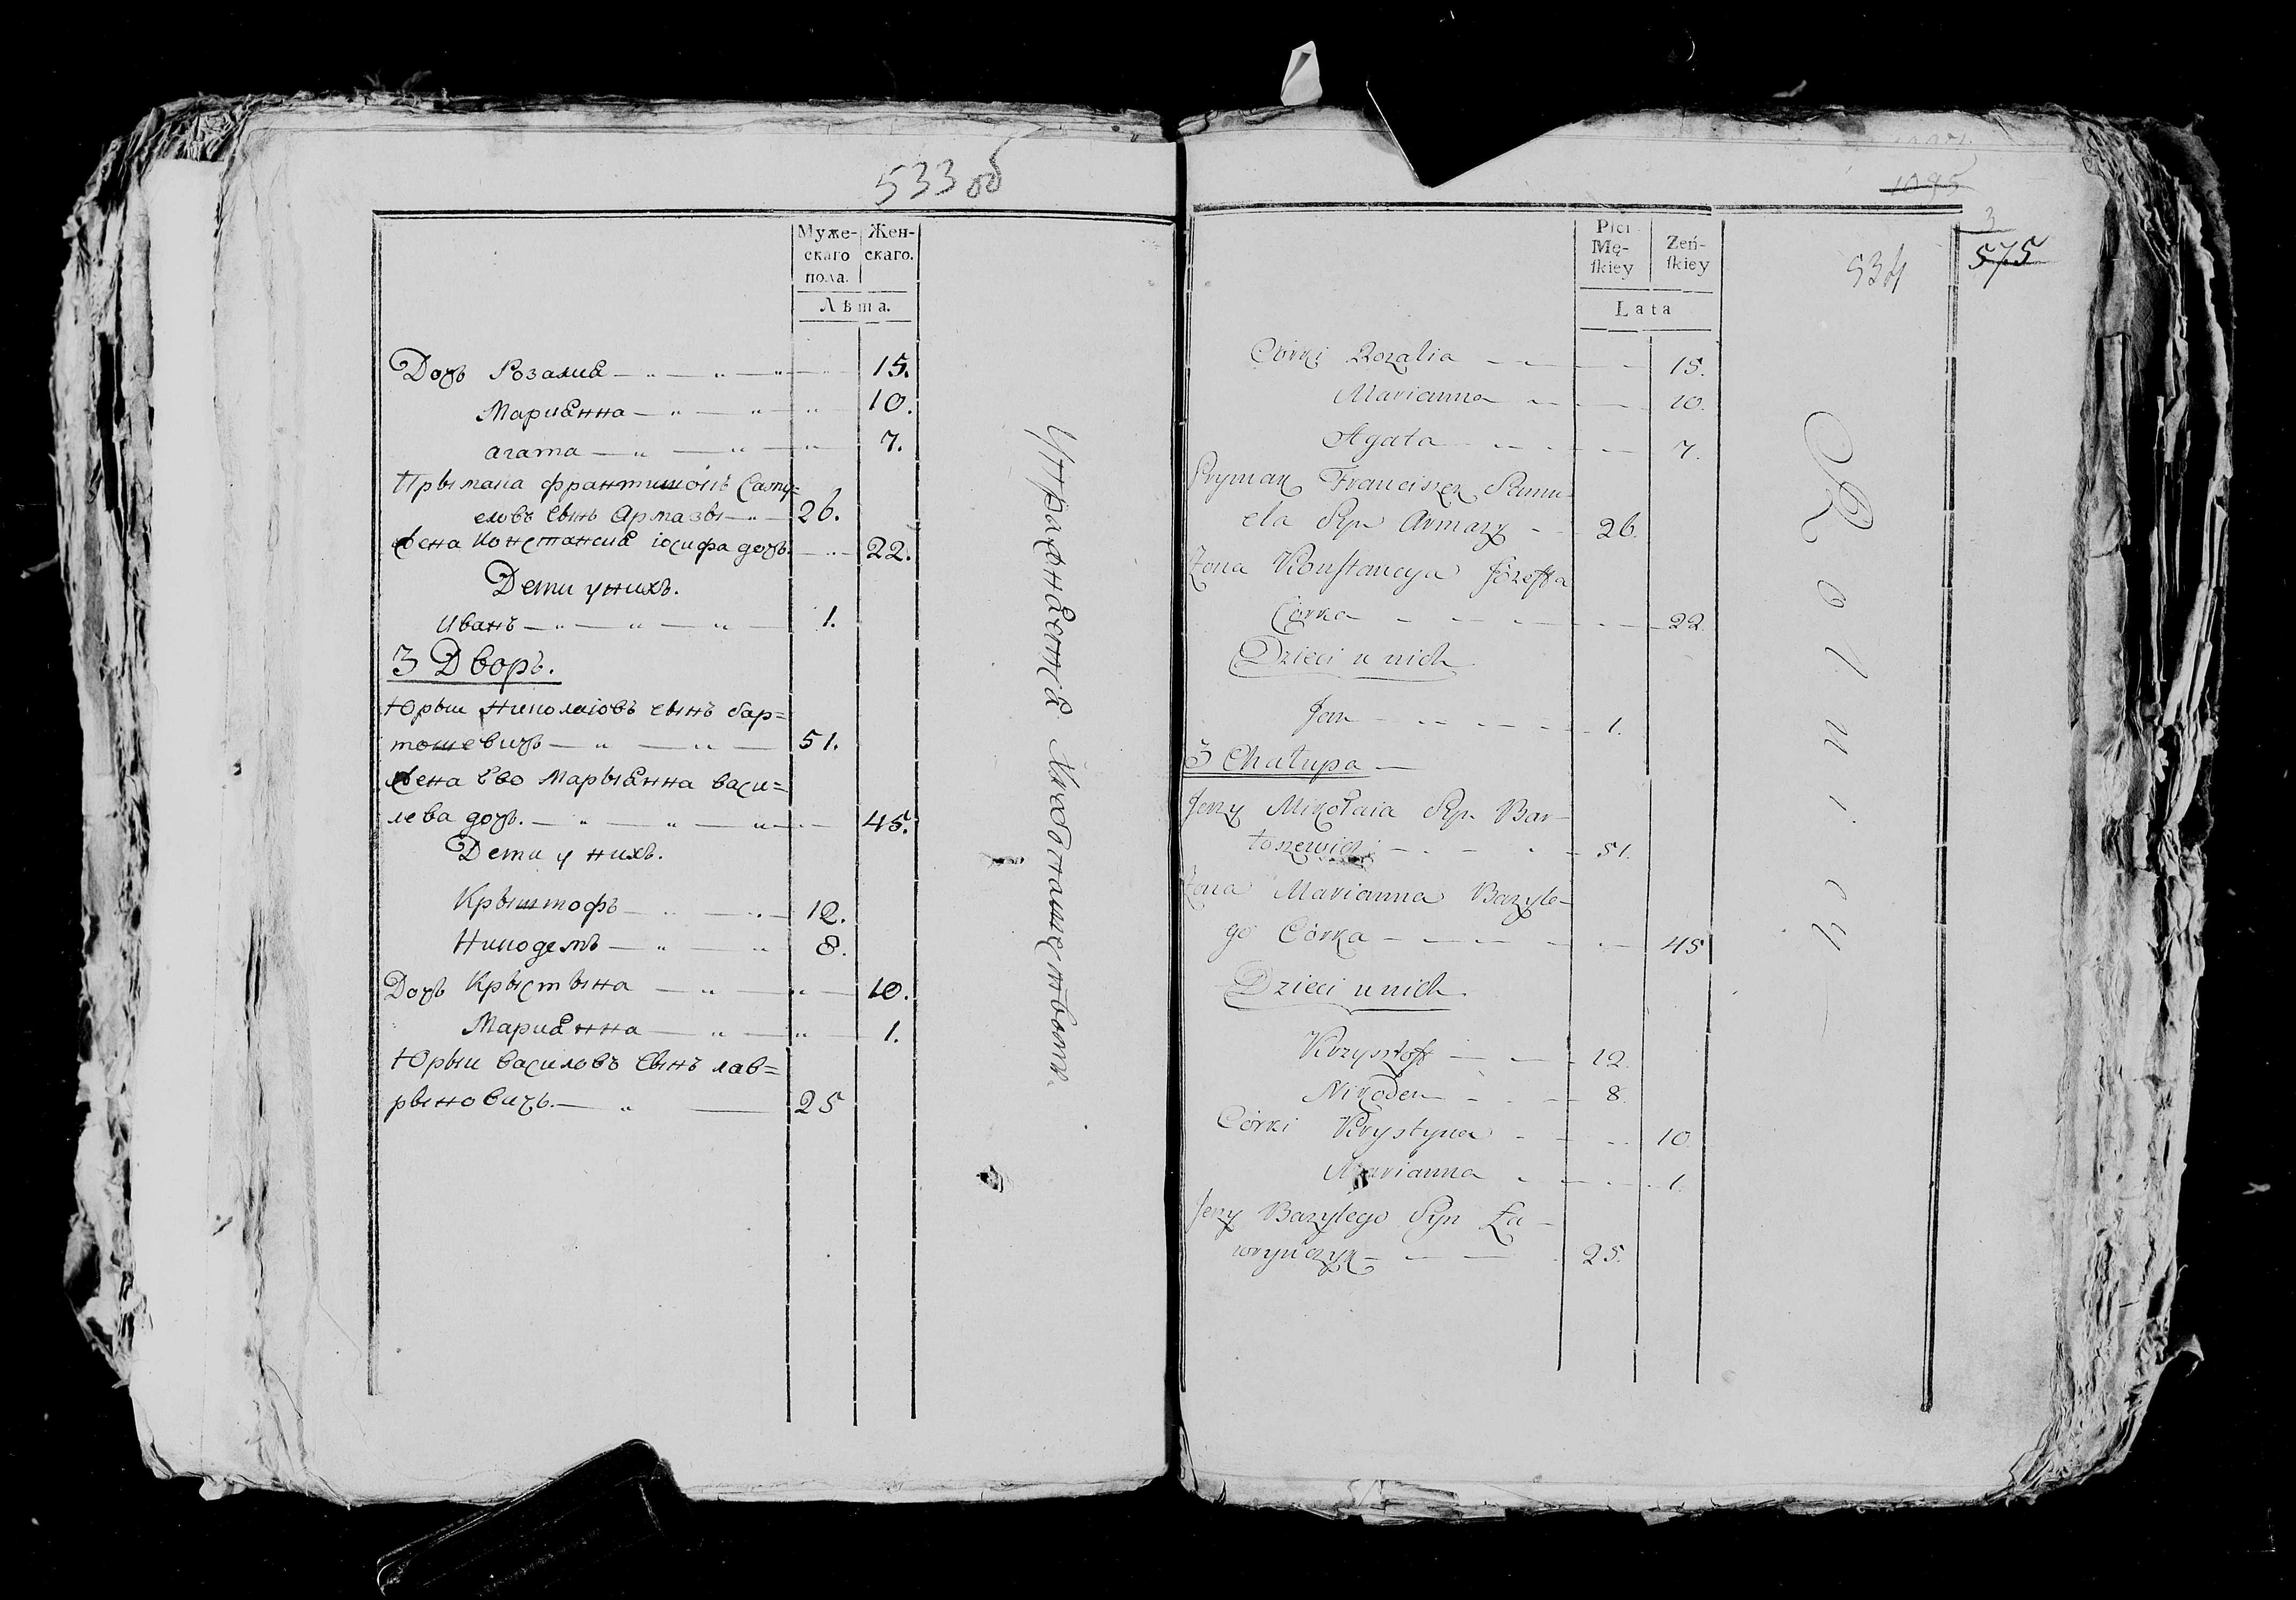 533 об
Муже-
скаго
пола.
Жен-
скаго.
Лѣта.
Дочь Розалия 15.
Марианна 10.
агата 7.
Прымака францишокъ Саму=
еловъ Сынъ Армазы 26.
жена Констансия іосифа дочь. 22.
Дети у нихъ.
Иванъ 1.
3 Дворъ.
Юрыи Николаіовъ сынъ бар=
тошевичь 51.
жена Ево Марыянна васи=
лева дочь. 45.
Дети у нихъ.
Крыштофъ 12.
Никодемъ 8.
Дочь Крыстына 10.
Марианна 1.
Юрыи василовъ Сынъ лав=
рыновичь. 25
Упражняются Хлебопашествомъ.
1095
3
575
534
Płci
Mę-
ſkiey
Zeń-
ſkiey
Lata
Córki Rozalia 15.
Marianna 10.
Agata 7.
Prymak Franciszek Samu-
ela Syn Armazy 26.
Żona Konſtancya Józeffa
Córka 22.
Dzieci u nich
Jan 1.
3 Chałupa
Jerzy Mikołaia Syn Bar-
toszewicz 51.
Żona Marianna Bazyle-
go Córka 45
Dzieci u nich
Krzysztoff 12.
Nikodem 8.
Córki Krystyna 10.
Marianna 1.
Jerzy Bazylego Syn Ła-
wryńczyk 25.
Rolnicy